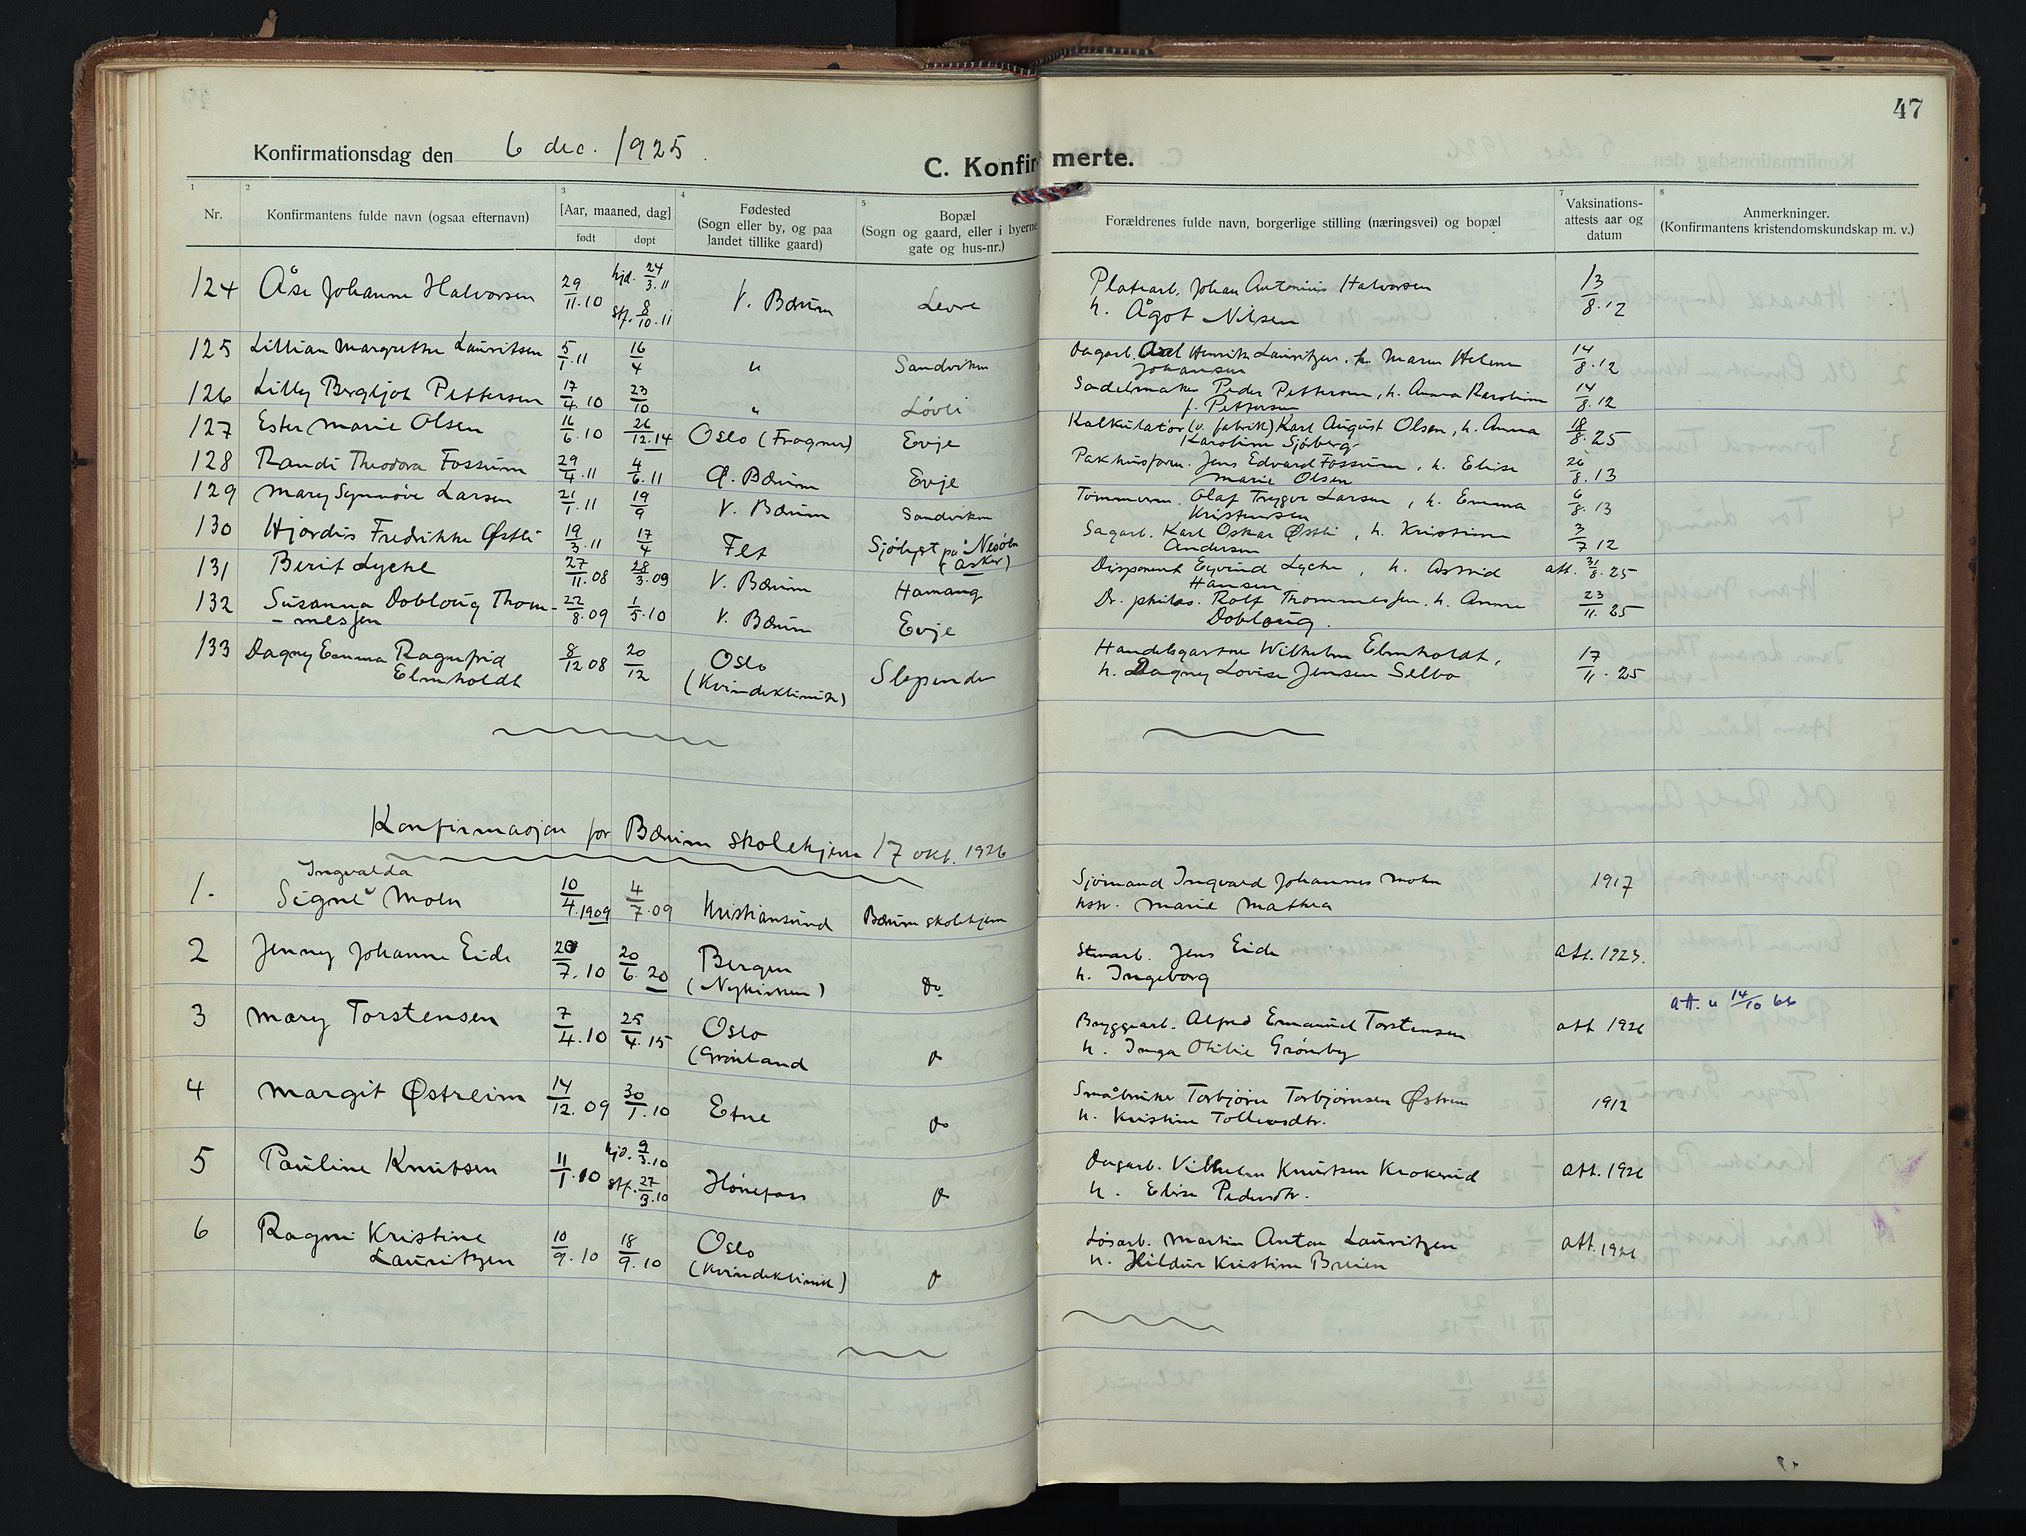 47
Konfirmationsdag den 6 dec. 1925.
C. Konfirmerte.
1 2 3 4 5 7 8
Nr.
Konfirmantens fulde navn (ogsaa efternavn)
[Aar, maaned, dag]
født døpt
Fødested
(Sogn eller by, og paa
landet tillike gaard)
Bopæl
(Sogn og gaard, eller i byerne
gate og hus-nr.)
Forældrenes fulde navn, borgerlige stilling (næringsvei) og bopæl
Vaksinations-
attests aar og
datum
Anmerkninger.
(Konfirmantens kristendomskundskap m. v.)
124 Åse Johanne Halvorsen 29/11.10 hjd. 24/3.11 stf. 8/10.11 V. Bærum Levre Platearb. Johan Antonius Halvorsen 13/8.12
h. Ågot Nilsen
125 Lillian Margrethe Lauritsen 5/1.11 16/4 " Sandviken Dagarb. Axel Henrik Lauritzen, h. Maren Helene 14/8.12
Johansen
126 Lilly Bergljot Pettersen 17/4.10 23/10 " Løvli Sadelmaker Peder Pettersen, h. Anna Karoline 14/8.12
f. Pettersen
127 Ester Marie Olsen 16/6.10 26/12.14 Oslo (Frogner) Evje Kalkulatør (v. fabrik) Karl August Olsen, h. Anna 18/8.25
Karoline Sjøberg
128 Randi Theodora Fossum 29/4.11 4/6.11 Ø. Bærum Evje Pakhusform. Jens Edvard Fossum, h. Elise 26/8.13
Marie Olsen
129 Mary Synnøve Larsen 21/1.11 19/9 V. Bærum Sandviken Tømmerm. Olaf Trygve Larsen, h. Emma 6/8.13
Kristensen
130 Hjordis Fredrikke Østli 19/3.11 17/4 Fet Sjølyst på Nesøen Sagarb. Karl Oskar Østli, h. Kristine 3/7 12
(Asker) Andersen
131 Berit Lyche 27/11.08 28/3.09 V. Bærum Hamang Disponent Eyvind Lyche, h. Astrid att. 31/8.25
Hansen
132 Susanna Dobloug Thom- 22/8.09 1/5.10 V. Bærum Evje Dr. philos. Rolf Thommessen, h. Anne 23/11.25
-messen Dobloug.
133 Dagny Emma Ragnfrid 8/12 08 20/12 Oslo Slependen Handelsgartner Wilhelm Elmholdt, 17/11.25
Elmholdt (Kvindeklinik) h. Dagny Lovise Jensen Selbo
Konfirmasjon for Bærum skolehjem 17 okt. 1926
Ingvalda
1. Signe Mohn 10/4.1909 4/7.09 Kristiansund Bærum skolehjem Sjømand Ingvard Johannes Mohn 1917
hstr. Marie Mathea
2 Jenny Johanne Eide 20/7.10 20/6.20 Bergen do. Stenarb. Jens Eide att. 1923.
(Nykirken) h. Ingeborg
3 Mary Torstensen 7/4.10 25/4.15 Oslo do Bryggearb. Alfred Emanuel Torstensen att 1926 att. u 14/10 66
(Grønland h. Inga Otilie Grønsby
4 Margit Østreim 14/12.09 30/1.10 Etne do Småbruker Torbjørn Torbjørnsen Østrem 1912
h. Kristine Tollevsdtr.
5 Pauline Knutsen 11/1.10 hjd. 9/3.10 stf. 27/3.10 Hønefoss do Dagarb. Vilhelm Knutsen Krokerud att. 1926
h. Elise Pedersdtr.
6 Ragni Kristine 10/9.10 18/9.10 Oslo do Løsarb. Martin Anton Lauritzen att. 1926
Lauritzen (Kvindeklinik) h. Hildur Kristine Breien